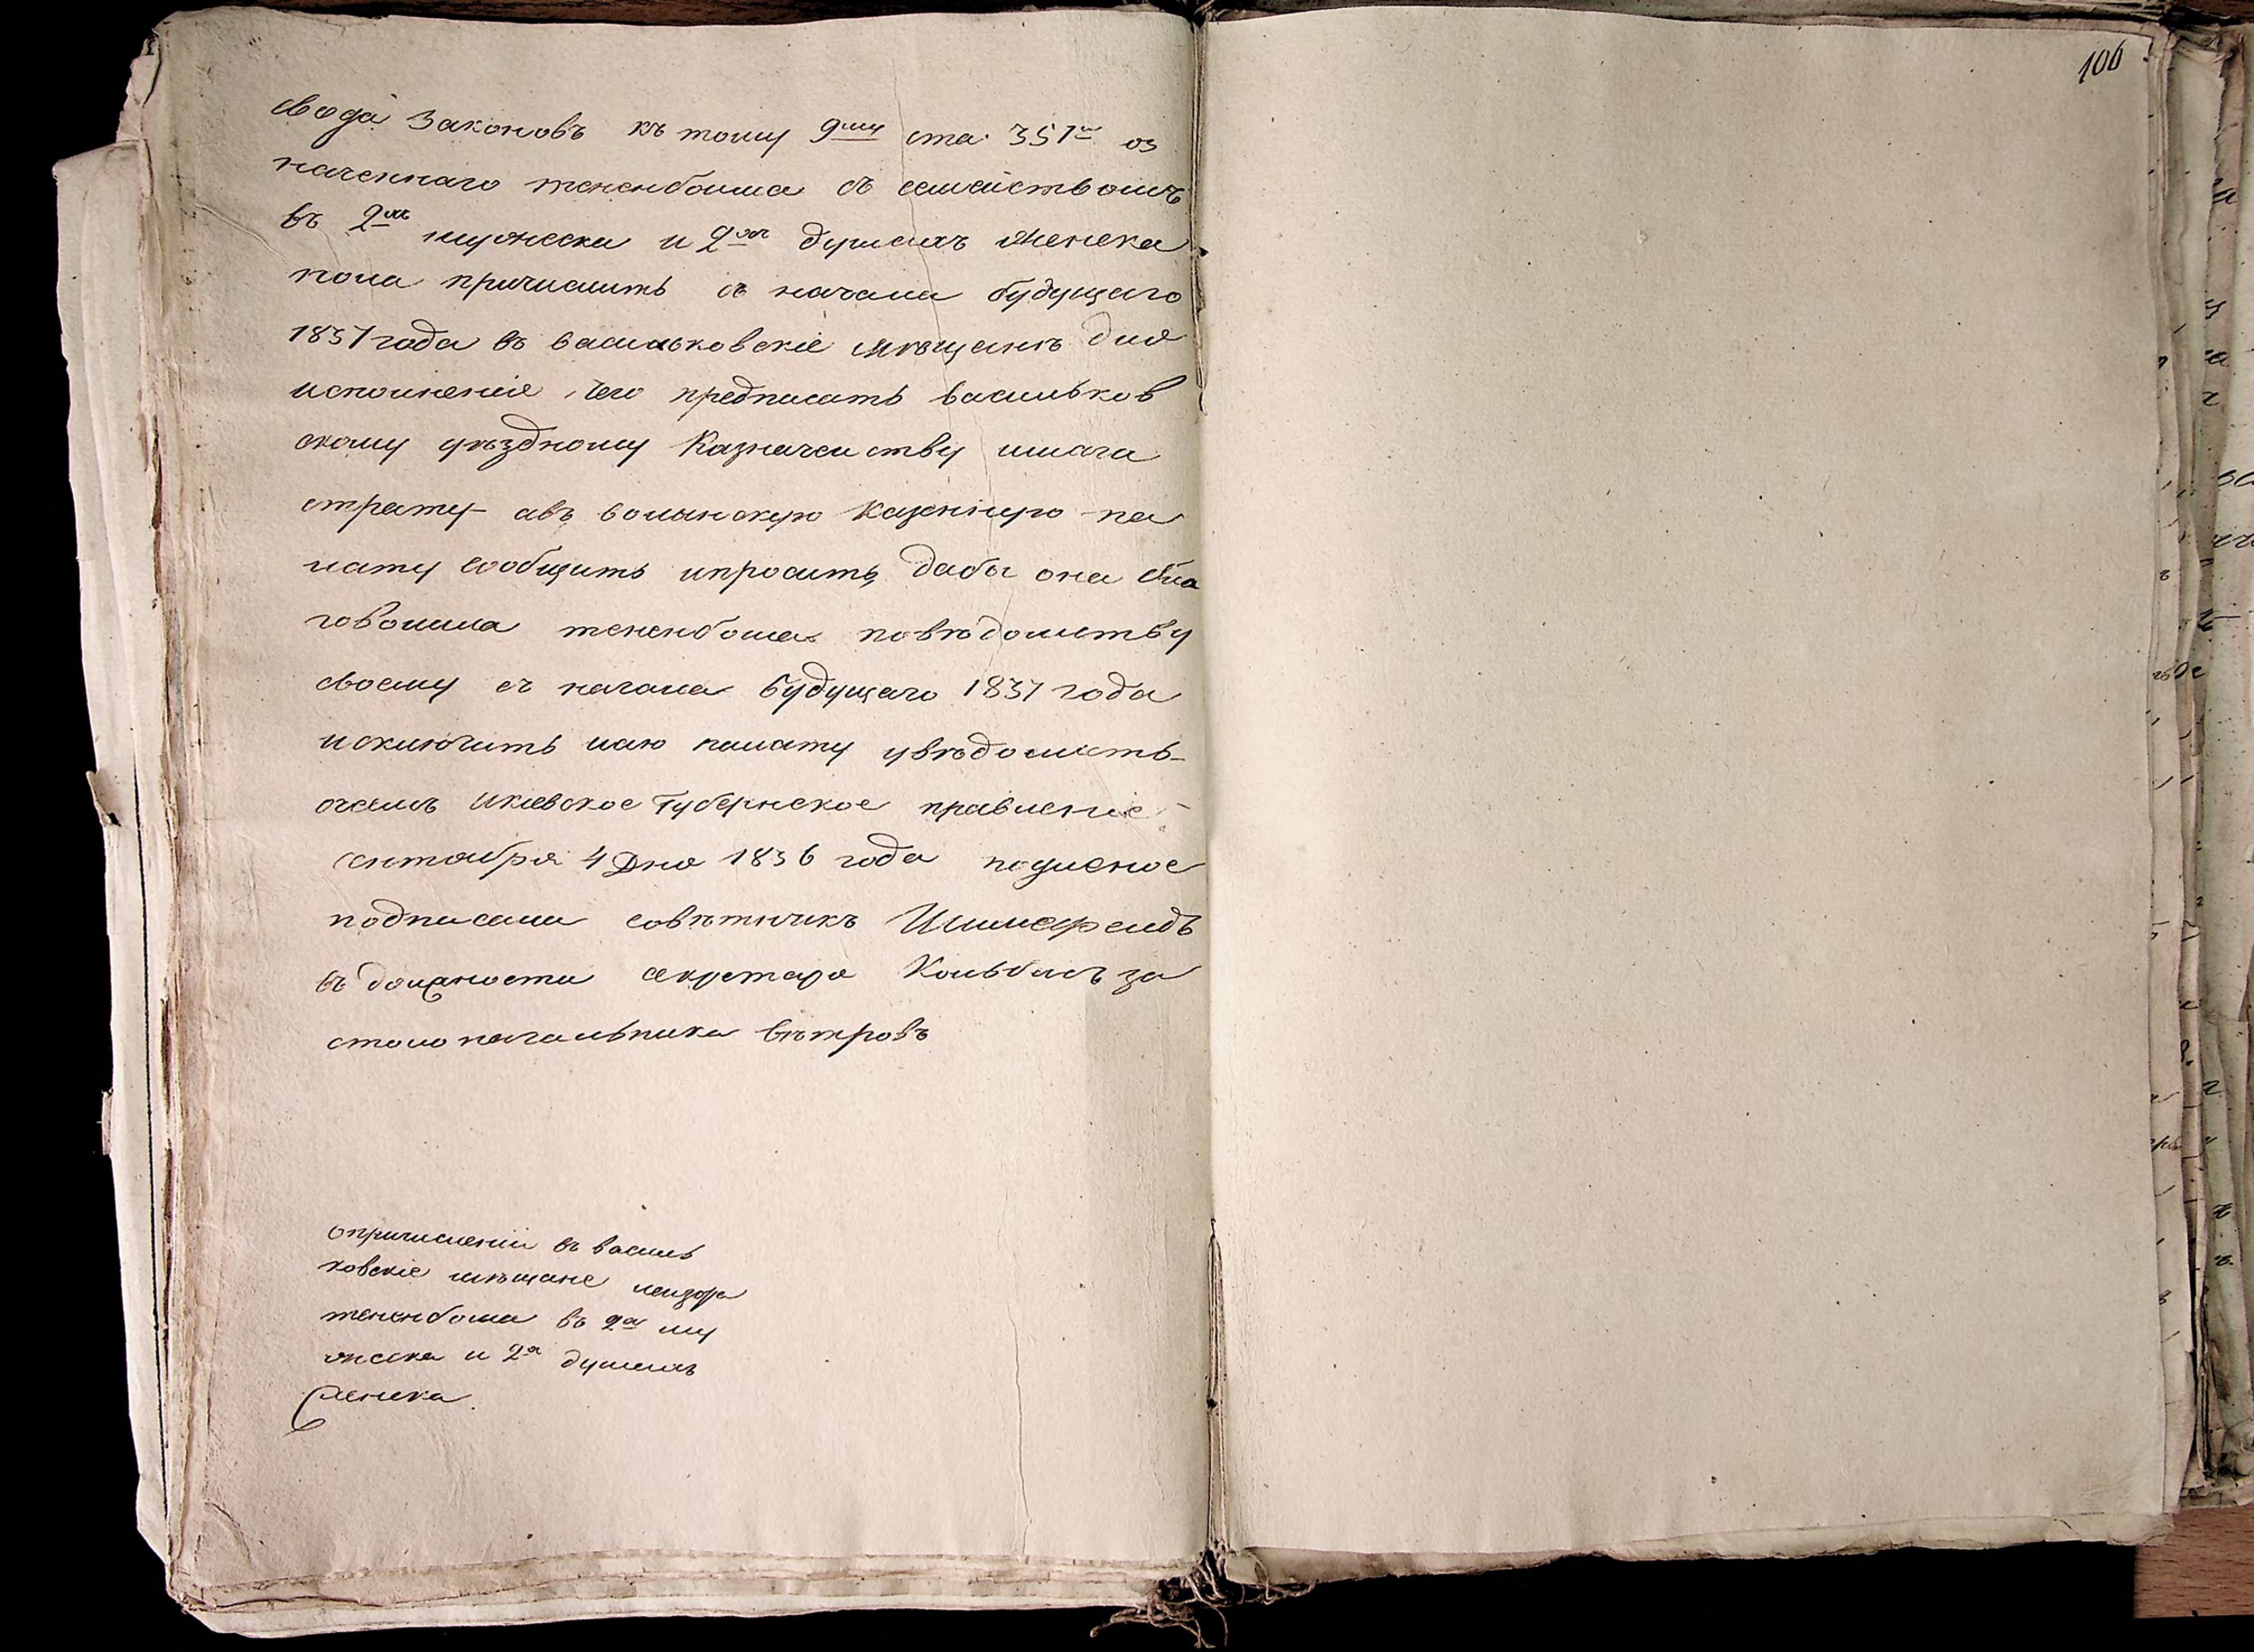 106
свода Законовъ къ тому 9му ста. 351й оз
наченнаго тененбоима съ семействомъ
въ 2хъ мужеска и 2хъ душахъ женска
пола причислить съ начала будущаго
1837 года въ васильковскіе мѣщанѣ для
исполненія, чего предписать васильков
скому уѣздному Казначейству имаги
страту авъ волынскую казенную па
лату сообщить ипросить дабы она бла
говолила тененбома повѣдомству
своему съ начала будущаго 1837 года
исключить иаю палату увѣдомить
очемъ икіевское Губернское правленіе
сентября 4 Дня 1836 года подленое
подписали совѣтникъ
въ должности секретаря за
столоначальника вѣтровъ
опричисленіи въ василь
ковскіе мѣщане лейзора
тененбома въ 2хъ му
жеска и 2хъ душахъ
женска.